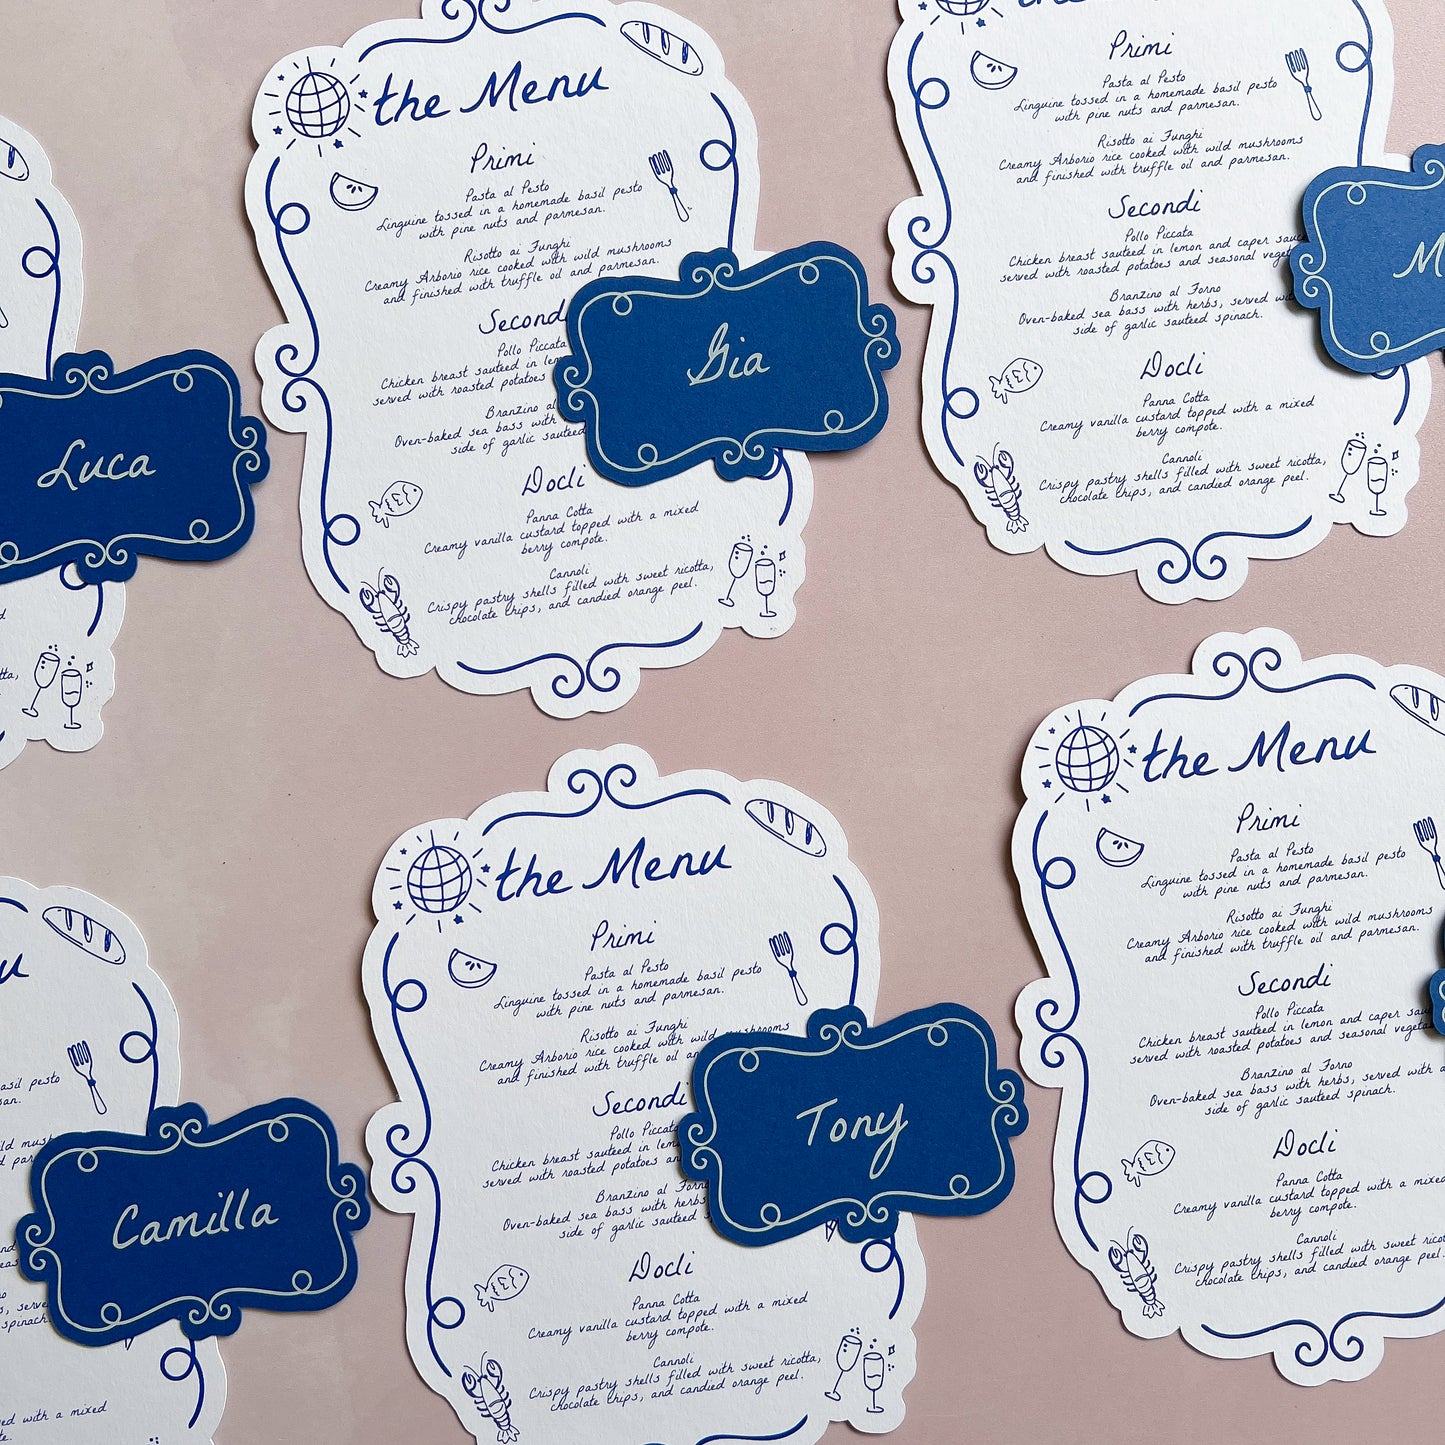 the Menu
Primi
Pasta al Pesto
Linguine tossed in a homemade basil pesto
with pine nuts and parmesan.
Risotto ai Funghi
Creamy Arborio rice cooked with wild mushrooms
and finished with truffle oil and parmesan.
Secondi
Pollo Piccata
Chicken breast sauteed in lem
served with roasted potatoes
Branzino al
Oven-baked sea bass with
side of garlic sauteed
Docli
Panna Cotta
Creamy vanilla custard topped with a mixed
berry compote.
Cannoli
Crispy pastry shells filled with sweet ricotta,
chocolate chips, and candied orange peel.
Gia
Primi
Pasta al Pesto
Linguine tossed in a homemade basil pesto
with pine nuts and parmesan.
Risotto ai Funghi
Creamy Arborio rice cooked with wild mushrooms
and finished with truffle oil and parmesan.
Secondi
Pollo Piccata
Chicken breast sauteed in lemon and caper sauce
served with roasted potatoes and seasonal veget
Branzino al Forno
Oven-baked sea bass with herbs, served wi
side of garlic sauteed spinach.
Docli
Panna Cotta
Creamy vanilla custard topped with a mixed
berry compote.
Cannoli
Crispy pastry shells filled with sweet ricotta,
chocolate chips, and candied orange peel.
M
Luca
tta,
the Menu
Primi
Pasta al Pesto
Linguine tossed in a homemade basil pesto
with pine nuts and parmesan.
Risotto ai Funghi
Creamy Arborio rice cooked with wild mushrooms
and finished with truffle oil an
Secondi
Pollo Piccata
Chicken breast sauteed in lem
served with roasted potatoes an
Branzino al Forno
Oven-baked sea bass with herbs
side of garlic sauteed s
Docli
Panna Cotta
Creamy vanilla custard topped with a mixed
berry compote.
Cannoli
Crispy pastry shells filled with sweet ricotta,
chocolate chips, and candied orange peel.
Tony
the Menu
Primi
Pasta al Pesto
Linguine tossed in a homemade basil pesto
with pine nuts and parmesan.
Risotto ai Funghi
Creamy Arborio rice cooked with wild mushrooms
and finished with truffle oil and parmesan.
Secondi
Pollo Piccata
Chicken breast sauteed in lemon and caper sau
served with roasted potatoes and seasonal vegeta
Branzino al Forno
Oven-baked sea bass with herbs, served with a
side of garlic sauteed spinach.
Docli
Panna Cotta
Creamy vanilla custard topped with a mixed
berry compote.
Cannoli
Crispy pastry shells filled with sweet ricotta,
chocolate chips, and candied orange peel.
u
asil pesto
san.
ild mush
d par
Camilla
s, serve
spinach.
ed with a mixed
te.